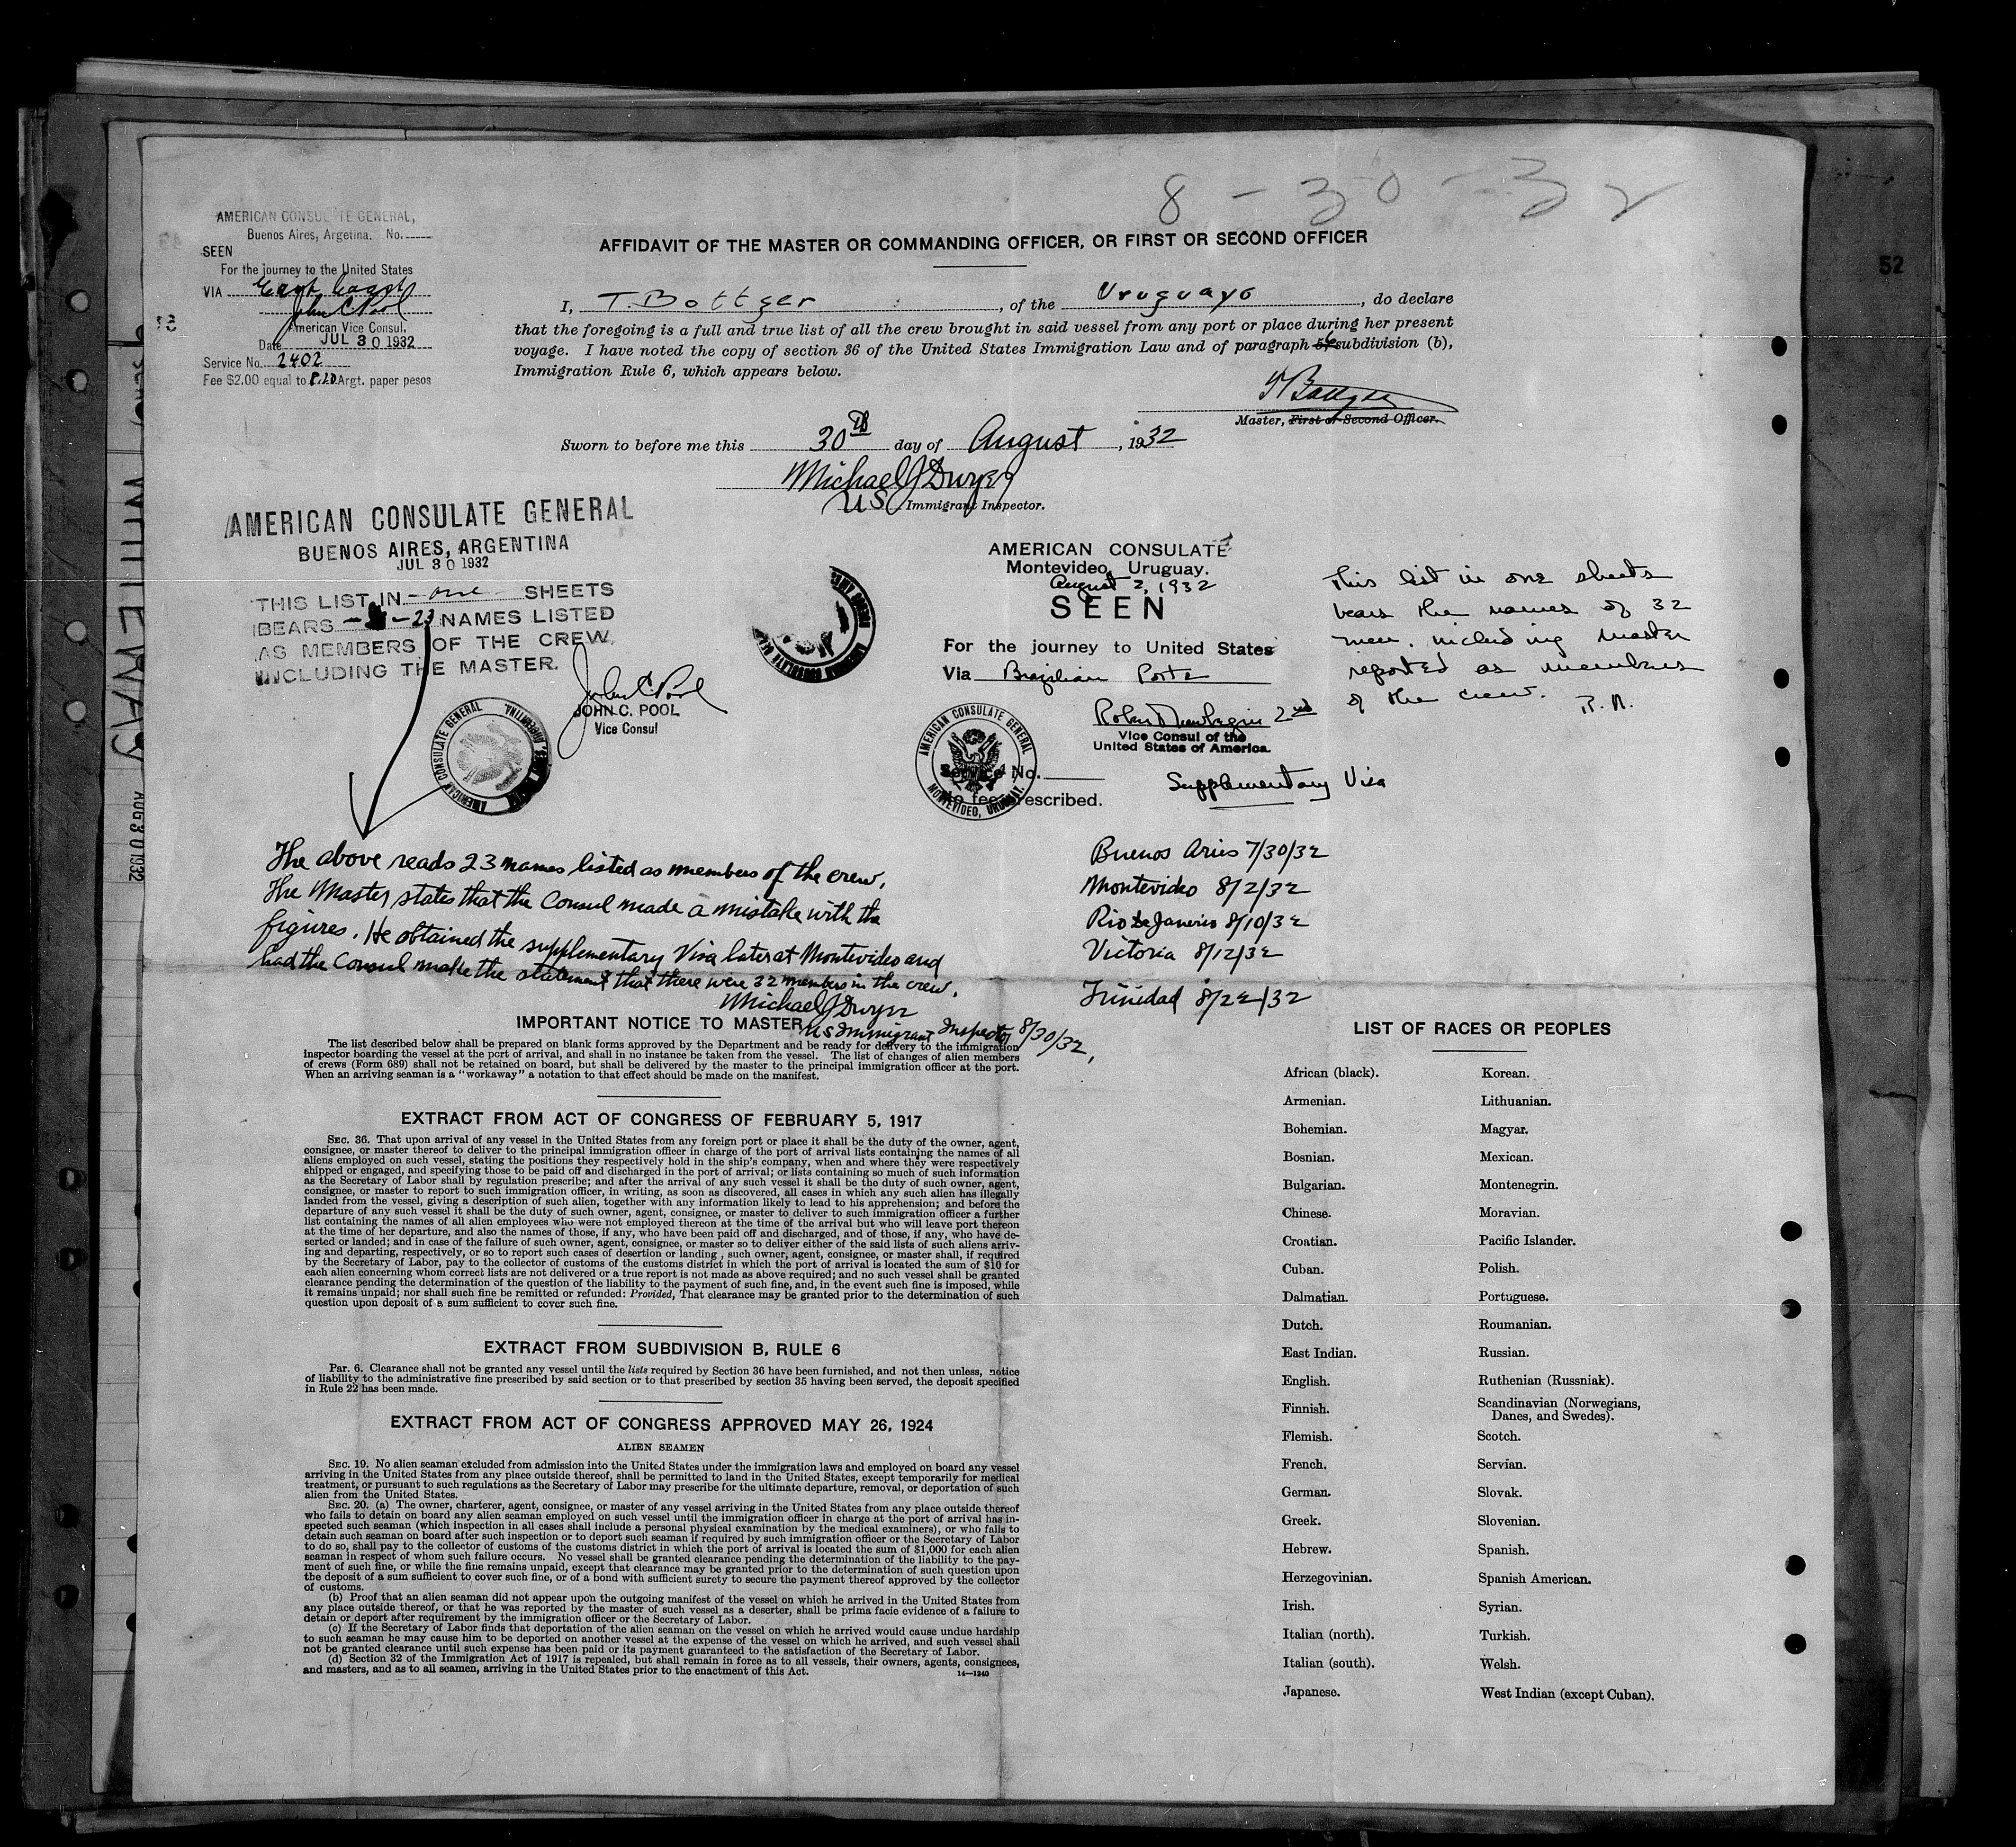 8-30-32
52
AMERICAN CONSULATE GENERAL,
Buenos Aires, Argetina. No.
SEEN
For the journey to the United States
VIA East Coast
John C Pool
American Vice Consul.
Date JUL 30 1932
Service No. 2402
Fee $2.00 equal to Argt. paper pesos
AFFIDAVIT OF THE MASTER OR COMMANDING OFFICER, OR FIRST OR SECOND OFFICER
I, T. Bottger, of the Uruguayo, do declare
that the foregoing is a full and true list of all the crew brought in said vessel from any port or place during her present
voyage. I have noted the copy of section 36 of the United States Immigration Law and of paragraph 6 subdivision (b),
Immigration Rule 6, which appears below.
T Bottger
Master, First or Second Officer.
Sworn to before me this 30th day of August, 1932
Michael J Dwyer
US Immigrant Inspector.
AMERICAN CONSULATE GENERAL
BUENOS AIRES, ARGENTINA
JUL 30 1932
THIS LIST IN - one - SHEETS
BEARS - 23 NAMES LISTED
AS MEMBERS OF THE CREW
INCLUDING THE MASTER.
John C Pool
JOHN C. POOL
Vice Consul
AMERICAN CONSULATE GENERAL
AMERICAN CONSULATE
Montevideo, Uruguay.
August 2, 1932
SEEN
For the journey to United States
Via Brazilian Ports
2nd
Vice Consul of the
United States of America.
Service No.
No fee prescribed.
AMERICAN CONSULATE GENERAL
MONTEVIDEO, URUGUAY.
Supplementary Visa
This list in one sheets
bears the names of 32
men, including master
reported as members
of the crew. R.N.
The above reads 23 names listed as members of the crew.
The Master states that the Consul made a mistake with the
figures. He obtained the supplementary Visa later at Montevideo and
had the Consul make the statement that there were 32 members in the crew.
Michael J Dwyer
US Immigrant Inspector 8/30/32,
Buenos Aries 7/30/32
Montevideo 8/2/32
Rio de Janerio 8/10/32
Victoria 8/12/32
Trinidad 8/22/32
IMPORTANT NOTICE TO MASTER
The list described below shall be prepared on blank forms approved by the Department and be ready for delivery to the immigration
inspector boarding the vessel at the port of arrival, and shall in no instance be taken from the vessel. The list of changes of alien members
of crews (Form 689) shall not be retained on board, but shall be delivered by the master to the principal immigration officer at the port.
When an arriving seaman is a "workaway" a notation to that effect should be made on the manifest.
EXTRACT FROM ACT OF CONGRESS OF FEBRUARY 5, 1917
SEC. 36. That upon arrival of any vessel in the United States from any foreign port or place it shall be the duty of the owner, agent,
consignee, or master thereof to deliver to the principal immigration officer in charge of the port of arrival lists containing the names of all
aliens employed on such vessel, stating the positions they respectively hold in the ship's company, when and where they were respectively
shipped or engaged, and specifying those to be paid off and discharged in the port of arrival; or lists containing so much of such information
as the Secretary of Labor shall by regulation prescribe; and after the arrival of any such vessel it shall be the duty of such owner, agent,
consignee, or master to report to such immigration officer, in writing, as soon as discovered, all cases in which any such alien has illegally
landed from the vessel, giving a description of such alien, together with any information likely to lead to his apprehension; and before the
departure of any such vessel it shall be the duty of such owner, agent, consignee, or master to deliver to such immigration officer a further
list containing the names of all alien employees who were not employed thereon at the time of the arrival but who will leave port thereon
at the time of her departure, and also the names of those, if any, who have been paid off and discharged, and of those, if any, who have de-
serted or landed; and in case of the failure of such owner, agent, consignee, or master so to deliver either of the said lists of such aliens arriv-
ing and departing, respectively, or so to report such cases of desertion or landing, such owner, agent, consignee, or master shall, if required
by the Secretary of Labor, pay to the collector of customs of the customs district in which the port of arrival is located the sum of $10 for
each alien concerning whom correct lists are not delivered or a true report is not made as above required; and no such vessel shall be granted
clearance pending the determination of the question of the liability to the payment of such fine, and, in the event such fine is imposed, while
it remains unpaid; nor shall such fine be remitted or refunded: Provided, That clearance may be granted prior to the determination of such
question upon deposit of a sum sufficient to cover such fine.
EXTRACT FROM SUBDIVISION B, RULE 6
Par. 6. Clearance shall not be granted any vessel until the lists required by Section 36 have been furnished, and not then unless, notice
of liability to the administrative fine prescribed by said section or to that prescribed by section 35 having been served, the deposit specified
in Rule 22 has been made.
EXTRACT FROM ACT OF CONGRESS APPROVED MAY 26, 1924
ALIEN SEAMEN
SEC. 19. No alien seaman excluded from admission into the United States under the immigration laws and employed on board any vessel
arriving in the United States from any place outside thereof, shall be permitted to land in the United States, except temporarily for medical
treatment, or pursuant to such regulations as the Secretary of Labor may prescribe for the ultimate departure, removal, or deportation of such
alien from the United States.
SEC. 20. (a) The owner, charterer, agent, consignee, or master of any vessel arriving in the United States from any place outside thereof
who fails to detain on board any alien seaman employed on such vessel until the immigration officer in charge at the port of arrival has in-
spected such seaman (which inspection in all cases shall include a personal physical examination by the medical examiners), or who fails to
detain such seaman on board after such inspection or to deport such seaman if required by such immigration officer or the Secretary of Labor
to do so, shall pay to the collector of customs of the customs district in which the port of arrival is located the sum of $1,000 for each alien
seaman in respect of whom such failure occurs. No vessel shall be granted clearance pending the determination of the liability to the pay-
ment of such fine, or while the fine remains unpaid, except that clearance may be granted prior to the determination of such question upon
the deposit of a sum sufficient to cover such fine, or of a bond with sufficient surety to secure the payment thereof approved by the collector
of customs.
(b) Proof that an alien seaman did not appear upon the outgoing manifest of the vessel on which he arrived in the United States from
any place outside thereof, or that he was reported by the master of such vessel as a deserter, shall be prima facie evidence of a failure to
detain or deport after requirement by the immigration officer or the Secretary of Labor.
(c) If the Secretary of Labor finds that deportation of the alien seaman on the vessel on which he arrived would cause undue hardship
to such seaman he may cause him to be deported on another vessel at the expense of the vessel on which he arrived, and such vessel shall
not be granted clearance until such expense has been paid or its payment guaranteed to the satisfaction of the Secretary of Labor.
(d) Section 32 of the Immigration Act of 1917 is repealed, but shall remain in force as to all vessels, their owners, agents, consignees,
and masters, and as to all seamen, arriving in the United States prior to the enactment of this Act.
14—1240
LIST OF RACES OR PEOPLES
African (black). Korean.
Armenian. Lithuanian.
Bohemian. Magyar.
Bosnian. Mexican.
Bulgarian. Montenegrin.
Chinese. Moravian.
Croatian. Pacific Islander.
Cuban. Polish.
Dalmatian. Portuguese.
Dutch. Roumanian.
East Indian. Russian.
English. Ruthenian (Russniak).
Finnish. Scandinavian (Norwegians,
Danes, and Swedes).
Flemish. Scotch.
French. Servian.
German. Slovak.
Greek. Slovenian.
Hebrew. Spanish.
Herzegovinian. Spanish American.
Irish. Syrian.
Italian (north). Turkish.
Italian (south). Welsh.
Japanese. West Indian (except Cuban).
AUG 30 1932